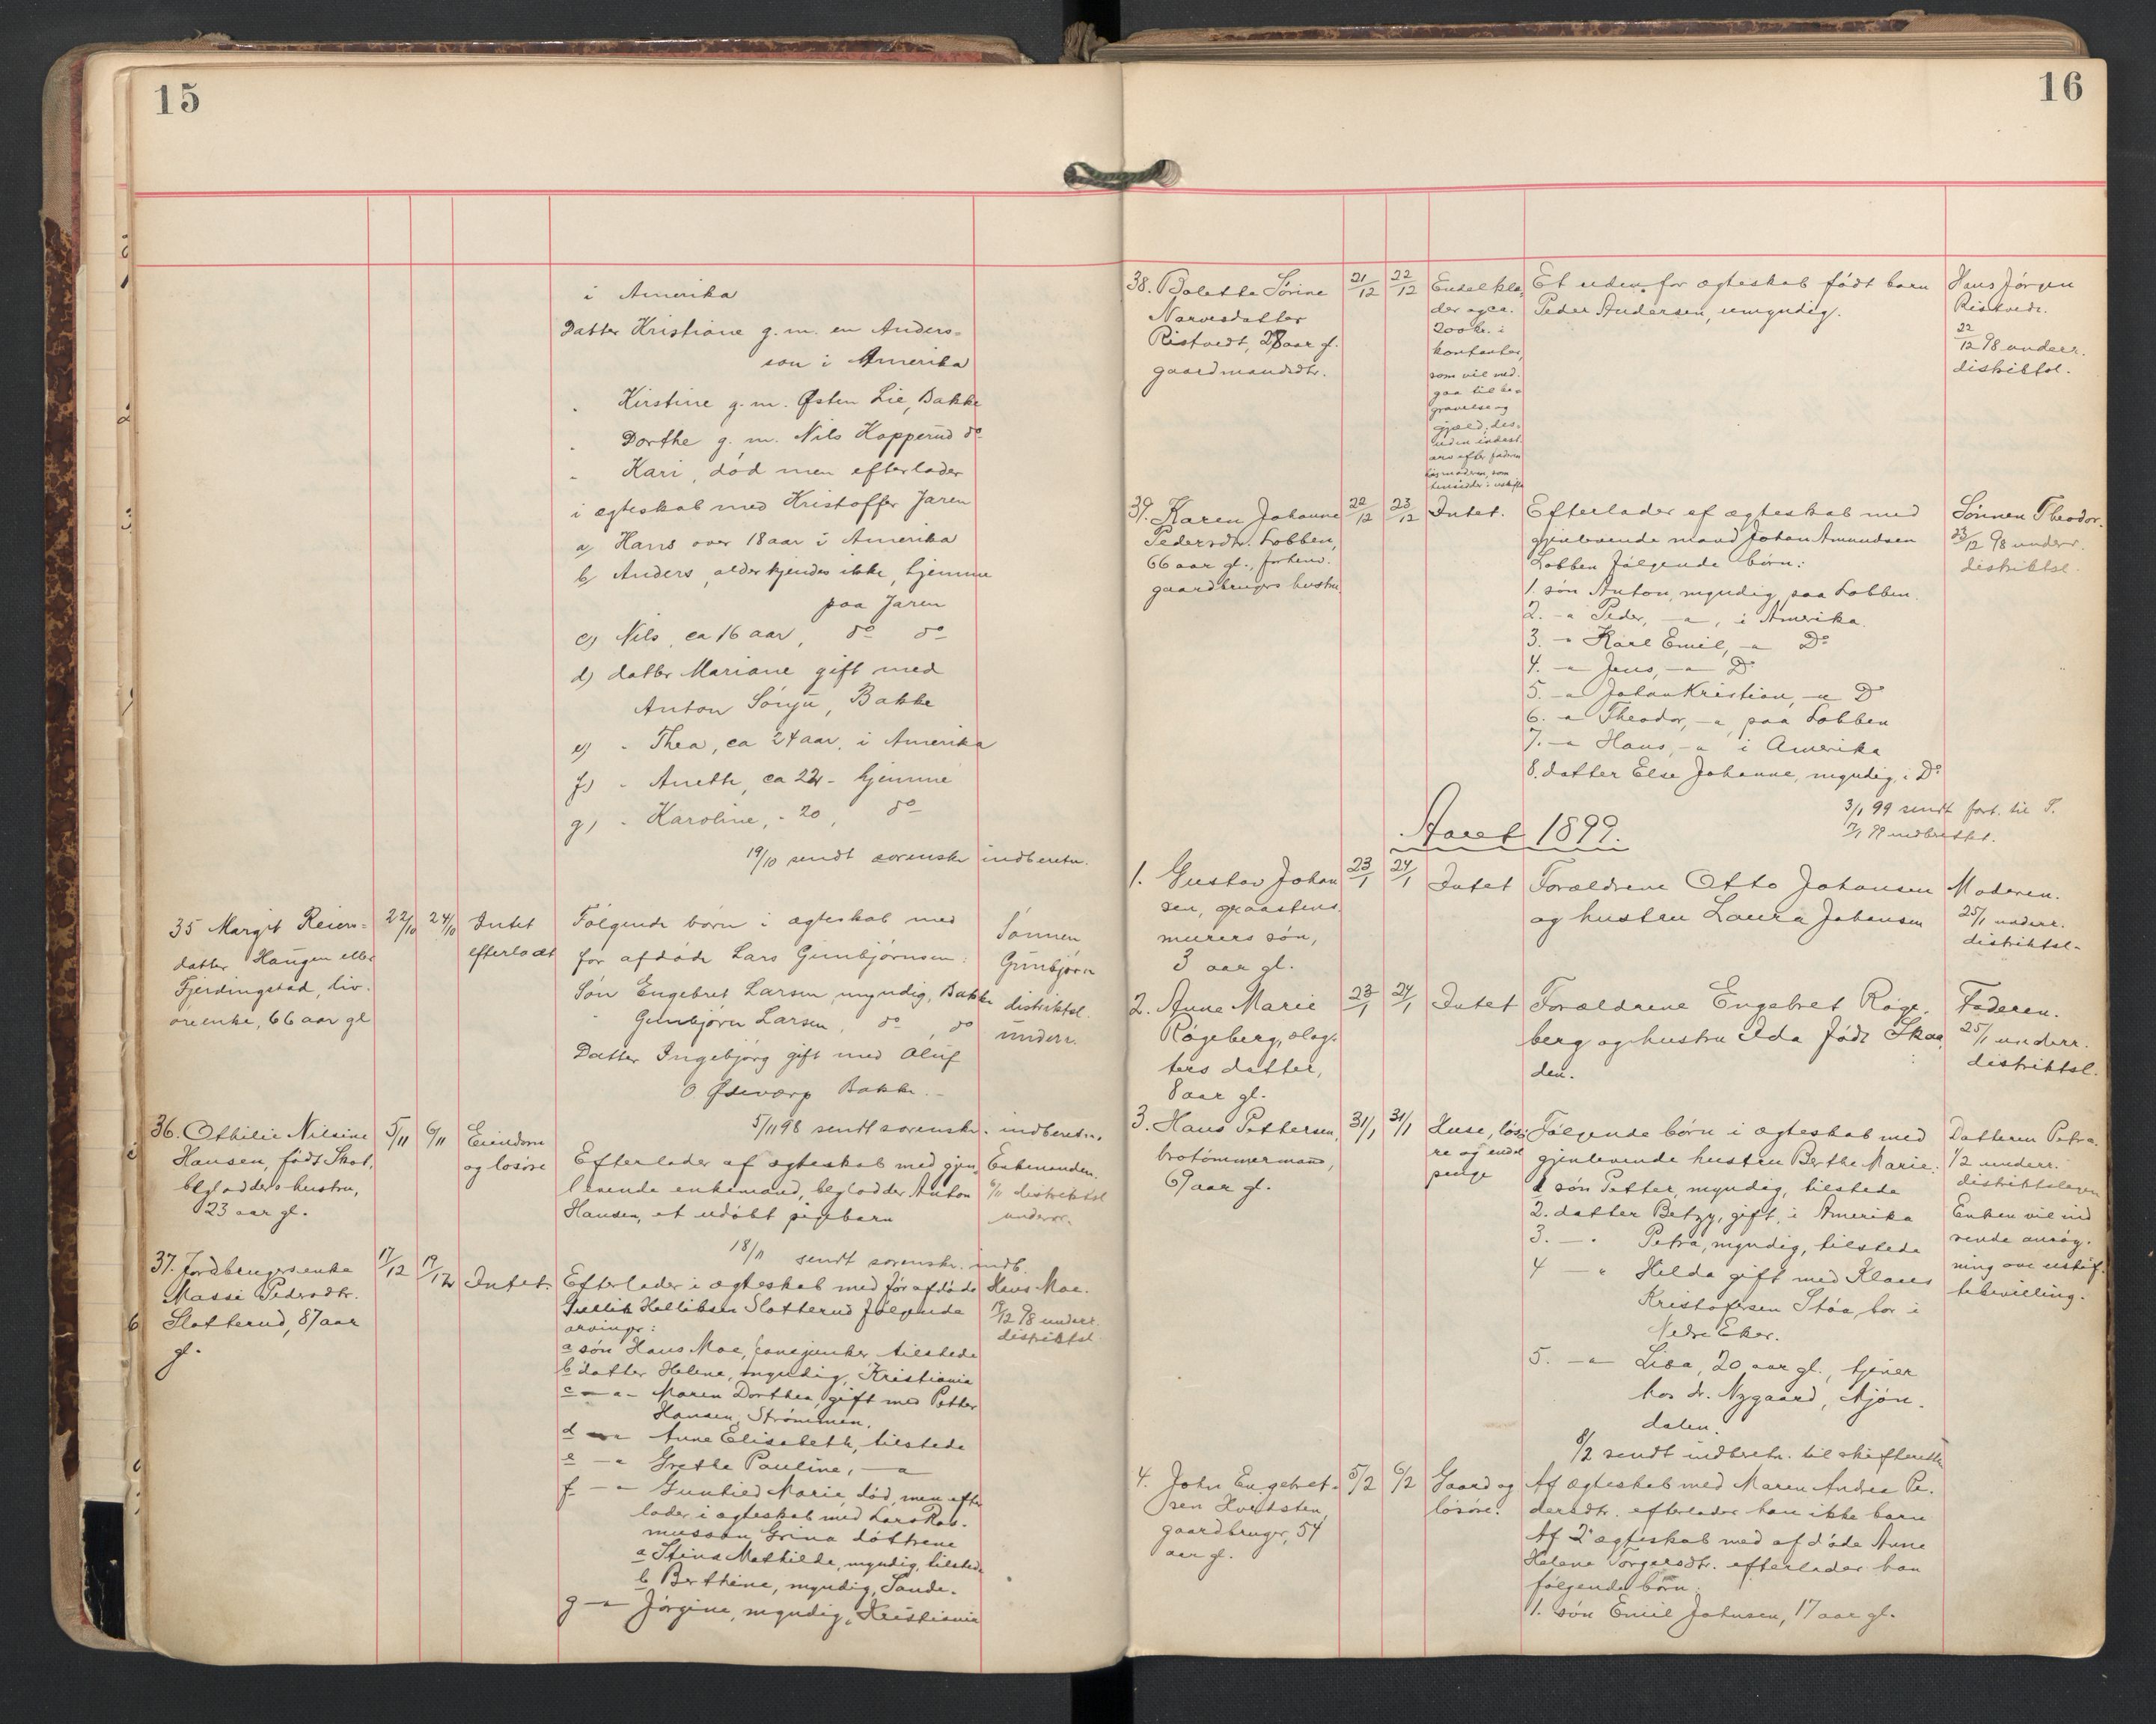 15
i Amerika
Datter Kristiane g.m. en Anders-
son i Amerika
" Kirstine g.m. Østen Lie, Bakke
" Dorthe g.m. Nils Hopperud do
" Kari, død men efterlader
i ægteskab med Kristoffer Jaren
a) Hans over 18 aar i Amerika
b) Anders, alder kjendes ikke, hjemme
paa Jaren
c) Nils, ca 16 aar, do do
d) datter Mariane gift med
Anton Sørgu, Bakke
e) " Thea, ca 24 aar, i Amerika
f) " Aneth, ca 22 - hjemme
g) " Karoline, - 20, do
19/10 sendt sorenskr indberetn.
35 Margit Reiers-
datter Haugen eller
Fjerdingstad, liv-
øreenke, 66 aar gl
22/10
24/10
Intet
efterladt
Følgende børn i ægteskab med
før afdøde Lars Gunbjørnsen:
Søn Engebret Larsen, myndig, Bakke
" Gunbjørn Larsen, do, do
Datter Ingebjørg gift med Oluf
O Østevorp Bakke.-
5/11 98 sendt sorenskr. indberetn.
Sønnen
Gunbjørn
distriktsl.
underr.
36. Othilie Nilsine
Hansen, født Skot,
bøgladders hustru,
23 aar gl.
5/11
6/11
Eiendom
og løsøre
Efterlader af ægteskab med gjen-
levende enkemand, Anton
Hansen, et udøbt pigebarn
18/11 sendt sorenskr. indb.
Enkemanden.
6/11 distriktsl
underr.
37. Jordbrugersenke
Massi Pedersdtr.
Slotterud, 87 aar
gl.
17/12
19/12
Intet.
Efterlader i ægteskab med før afdøde
Gullik Helliksen Slotterud følgende
arvinger:
a søn Hans Moe, tilstede
b datter Helene, myndig, Kristiania
c -"- Maren Dorthea, gift med Petter
Hansen, Strømmen.
d -"- Anne Elisabeth, tilstede
e -"- Grethe Pauline, -"-
f -"- Gunhild Marie, død, men efter
lader i ægteskab med Lars Ras-
mussen Grina døttrene
a Stina Mathilde, myndig, tilstede
b Berthine, myndig, Sande.
g -"- Jørgine, myndig, Kristiania
Hans Moe.
19/12 98 underr.
distriktsl
16
38. Bolette Sørine
Narvesdatter
Ristvedt, 28 aar gl.
gaardmandsdtr.
21/12
22/12
Endel klæ-
der og ca.
200 kr. i
kontanter,
som vil med-
gaa til be-
gravelse og
gjæld, des-
uden indest.
arv efter faderen
hos moderen, som
hensidder i uskifte
Et uden for ægteskab født barn
Peder Andersen, umyndig.
Hans Jørgen
Ristvedt.
22/12 98 underr.
distriktsl.
39. Karen Johanne
Pedersdtr. Lobben,
66 aar gl., forhenv.
gaardbrugers hustru
22/12
23/12
Intet.
Efterlader af ægteskab med
gjenlevende mand Johan Amundsen
Lobben følgende børn:
1. søn Anton, myndig, paa Lobben.
2. -"- Peder, -"-, i Amerika.
3. -"- Karl Emil, -"- Do
4. -"- Jens, -"- Do
5. -"- Johan Kristian, -"- Do
6. -"- Theodor, -"-, paa Lobben
7. -"- Hans, -"- i Amerika
8. datter Else Johanne, myndig, i Do
3/1 99 sendt fort. til S.
Sønnen Theodor.
23/12 98 underr.
distriktsl.
Aaret 1899.
1. Gustav Johan
sen, graastens-
murers søn,
3 aar gl.
23/1
24/1
Intet
Forældrene Otto Johansen
og hustru Laura Johansen
Moderen.
25/1 underr.
distriktsl-
2. Anne Marie
Røgeberg, slag-
ters datter,
8 aar gl.
23/1
24/1
Intet
Forældrene Engebret Røge-
berg og hustru Ida født Skaa-
den.
Faderen.
25/1 underr.
distriktsl.
3. Hans Pettersen,
brotømmermand,
69 aar gl.
31/1
31/1
Huse, løsø-
re og endel
penge
Følgende børn i ægteskab med
gjenlevende hustru Berthe Marie:
1 søn Petter, myndig, tilstede
2. datter Betzy, gift, i Amerika
3. -"- Petra, myndig, tilstede
4 -"- Hilda gift med Klaus
Kristofersen Støa, bor i
Nedre Eker.
5. -"- Lisa, 20 aar gl., tjener
hos dr. Nygaard, Mjøn-
dalen.
8/2 sendt indberetn. til skifteretten
Datteren Petra.
1/2 underr.
distriktslægen
Enken vil ind
sende ansøg-
ning om uskif-
tebevilling.
4. John Engebret-
sen Hvedsten,
gaardbruger, 54
aar gl.
5/2
6/2
Gaard og
løsøre.
Af ægteskab med Maren Andrea Pe-
dersdtr. efterlader han ikke barn
Af 2det ægteskab med afdøde Anne
Helene Torgersdtr. efterlader han
følgende børn:
1. søn Emil Johnsen, 17 aar gl.